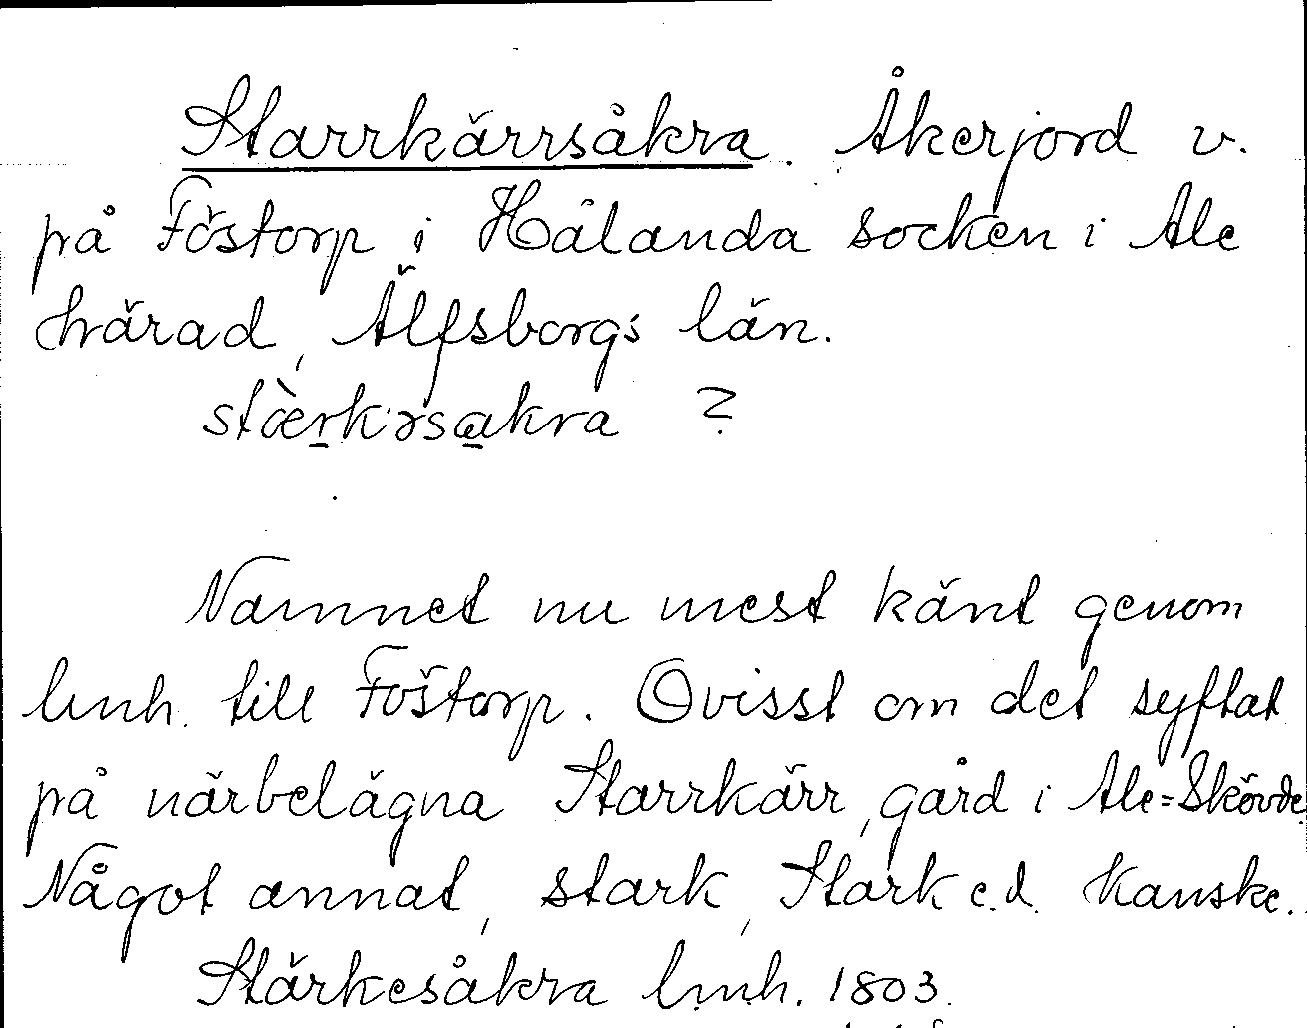 Starrkärrsåkra. Åkerjord v.
på Föstorp i Hålanda socken i Ale
härad, Älfsborgs län.
stæ̀rkərsakra ?
Namnet nu mest känt genom
lmh. till Föstorp. Ovisst om det syftat
på närbelägna Starrkärr, gård i Ale=Skövde.
Något annat, stark, Stark e.d. kanske.
Stärkesåkra lmh. 1803.